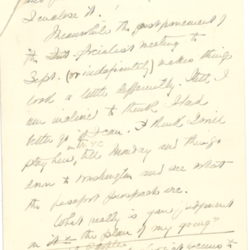 I enclose it.
Meanwhile the postponement of
the Int. Socialist meeting to
Sept. (or indefinitely) makes things
look a little differently. Still, I
am inclined to think I had
better go if I can. I think I will
stay here, till Monday and then go
down to Washington and see what
the passport prospects are.
What really is your judgment
on the plan of my going?